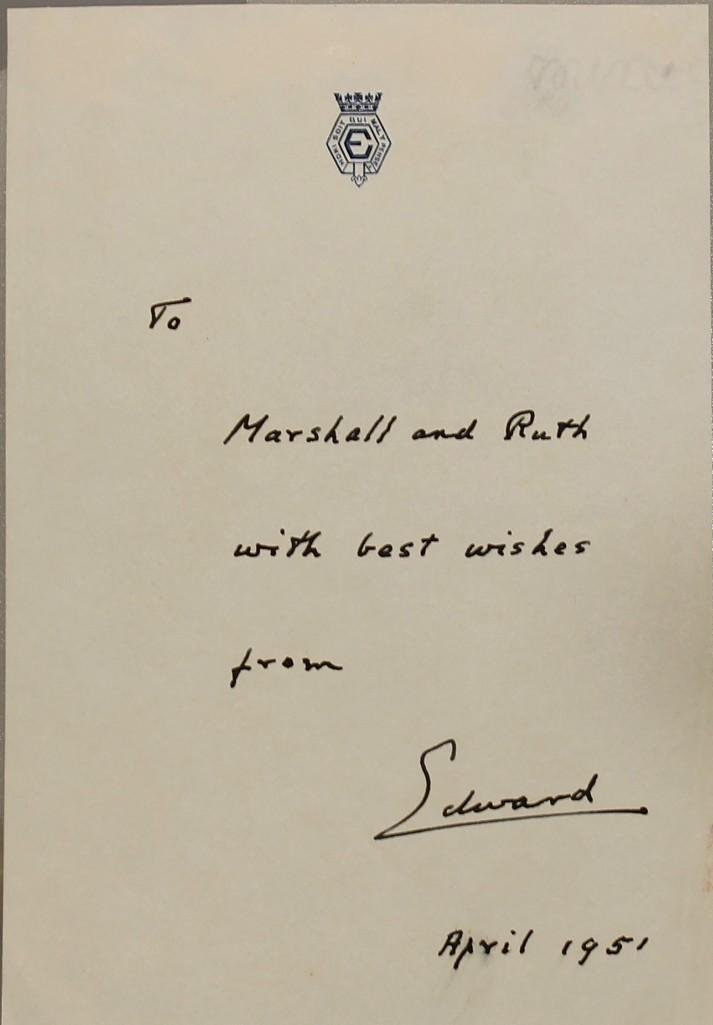 HONI SOIT QUI MAL Y PENSE
E
To
Marshall and Ruth
with best wishes
from
Edward
April 1951